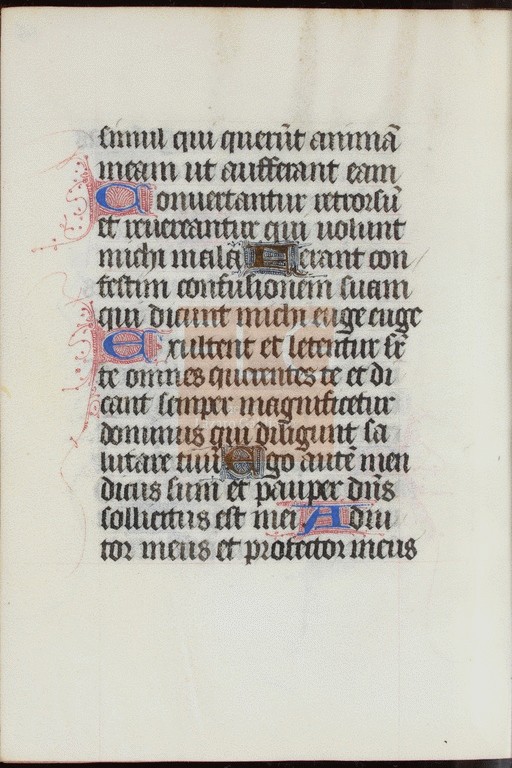 simul qui querūt animā
meam ut aufferant eam
Convertantur retrorsū
et revereantur qui volunt
michi mala Ferant con
festim confusionem suam
qui dicunt michi euge euge
Exultent et letentur sr̄
te omnes querentes te et di
cant semper magnificetur
dominus qui diligunt sa
lutare tuū Ego autē men
dicus sum et pauper dn̄s
sollicitus est mei Adiu
tor meus et protector meus